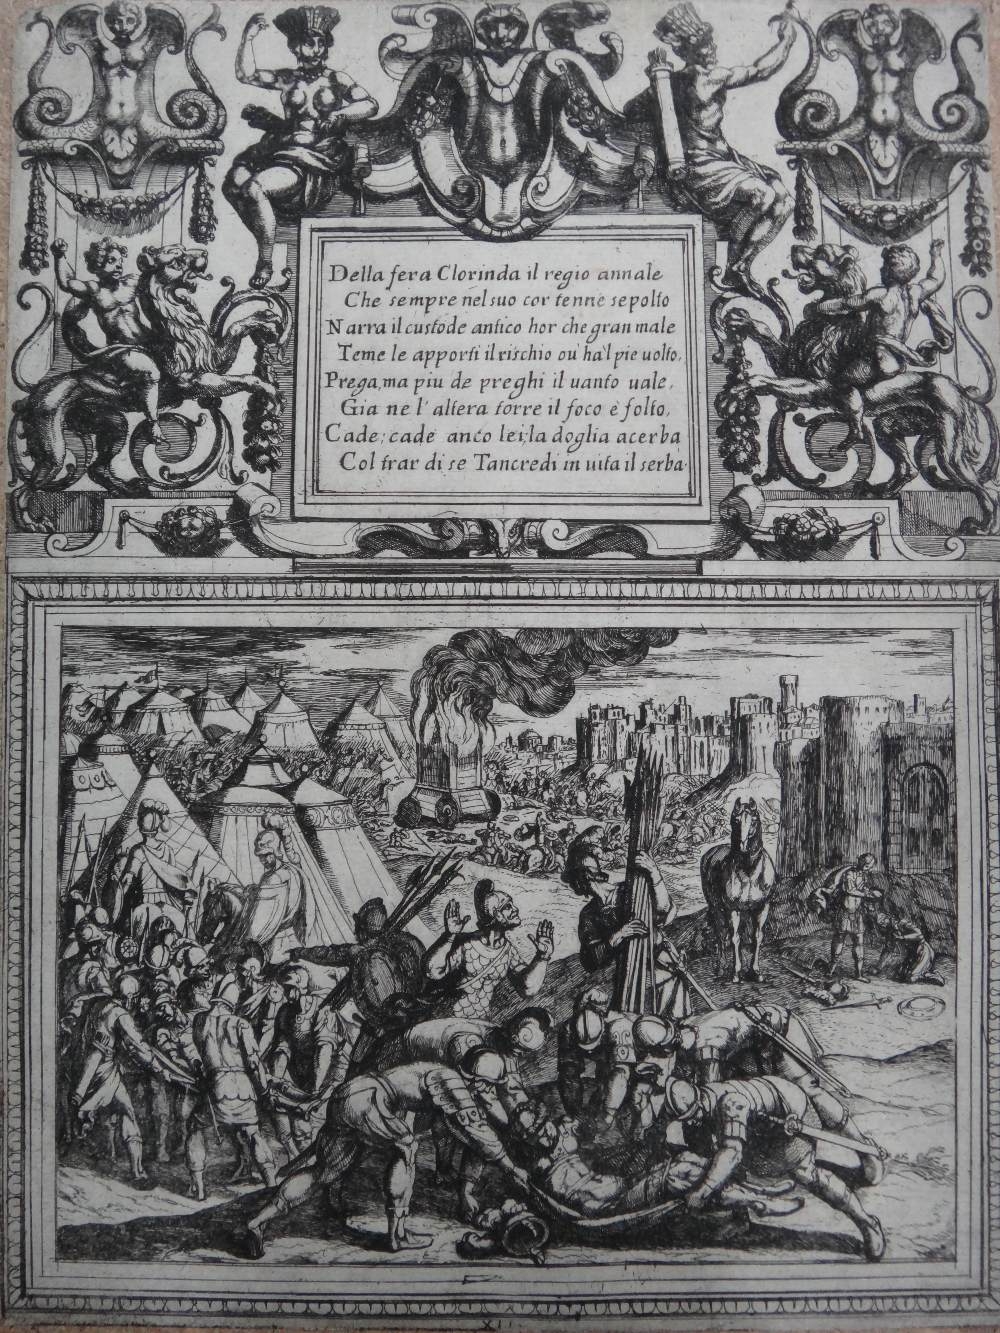 Della fera Clorinda il regio annale
Che sempre nel suo cor tenne sepolto
Narra il custode antico hor che gran male
Teme le apporti il rischio ou' ha'l pie uolto.
Prega, ma piu de preghi il uanto uale,
Gia ne l'altera torre il foco è folto,
Cade; cade anco lei; la doglia acerba
Col trar di se Tancredi in uita il serba.
XII